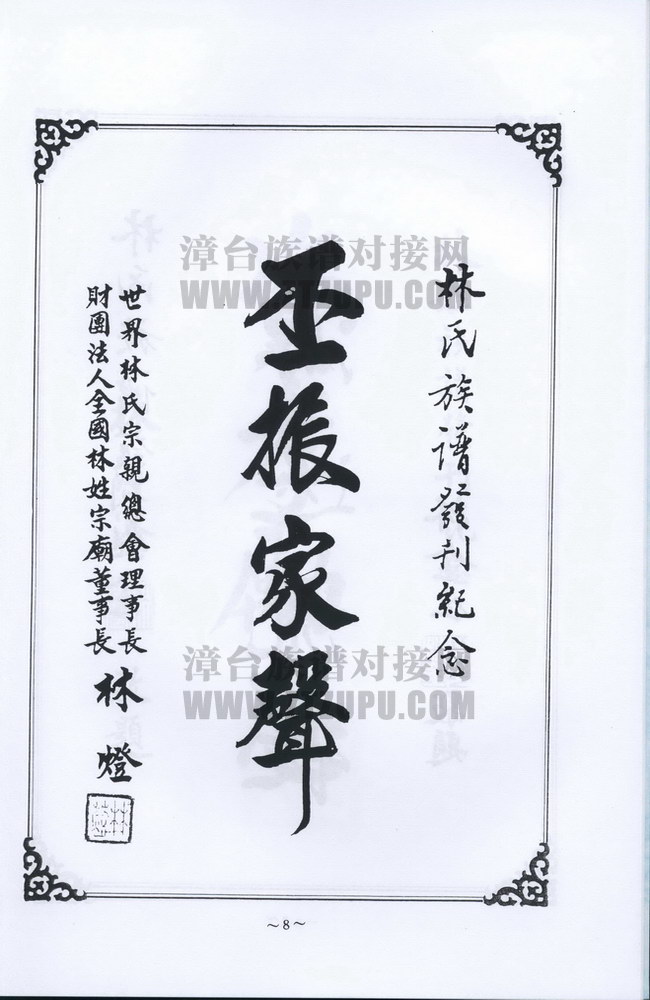 林氏族譜發刊紀念
丕振家聲
世界林氏宗親總會理事長
財團法人全國林姓宗廟董事長
林燈
漳台族谱对接网
漳台族谱对接网
～8～